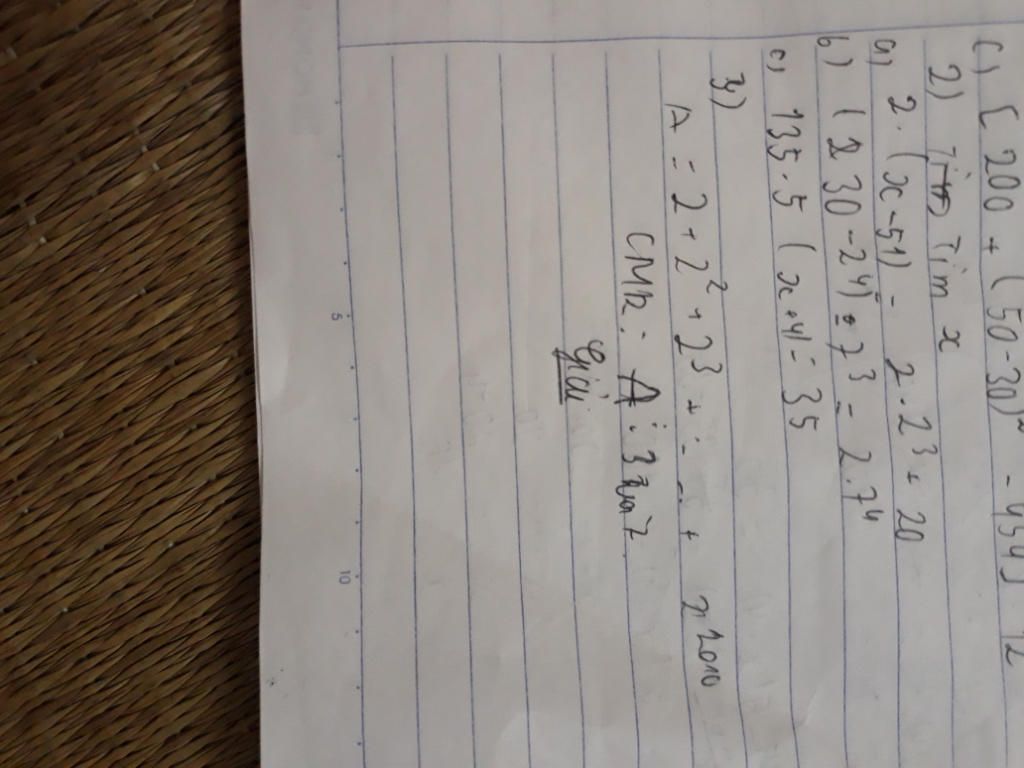 c) [ 200 + (50-30)² - 454] 12
2) Tìm x
a) 2. (x-51) = 2.2³ + 20
b) (230 - 24) : 7³ = 2.7⁴
c) 135-5 (x+4) = 35
3)
A = 2 + 2² + 2³ + ... + 2²⁰¹⁰
CMR: A ⋮ 3 và 7
Giải
5
10